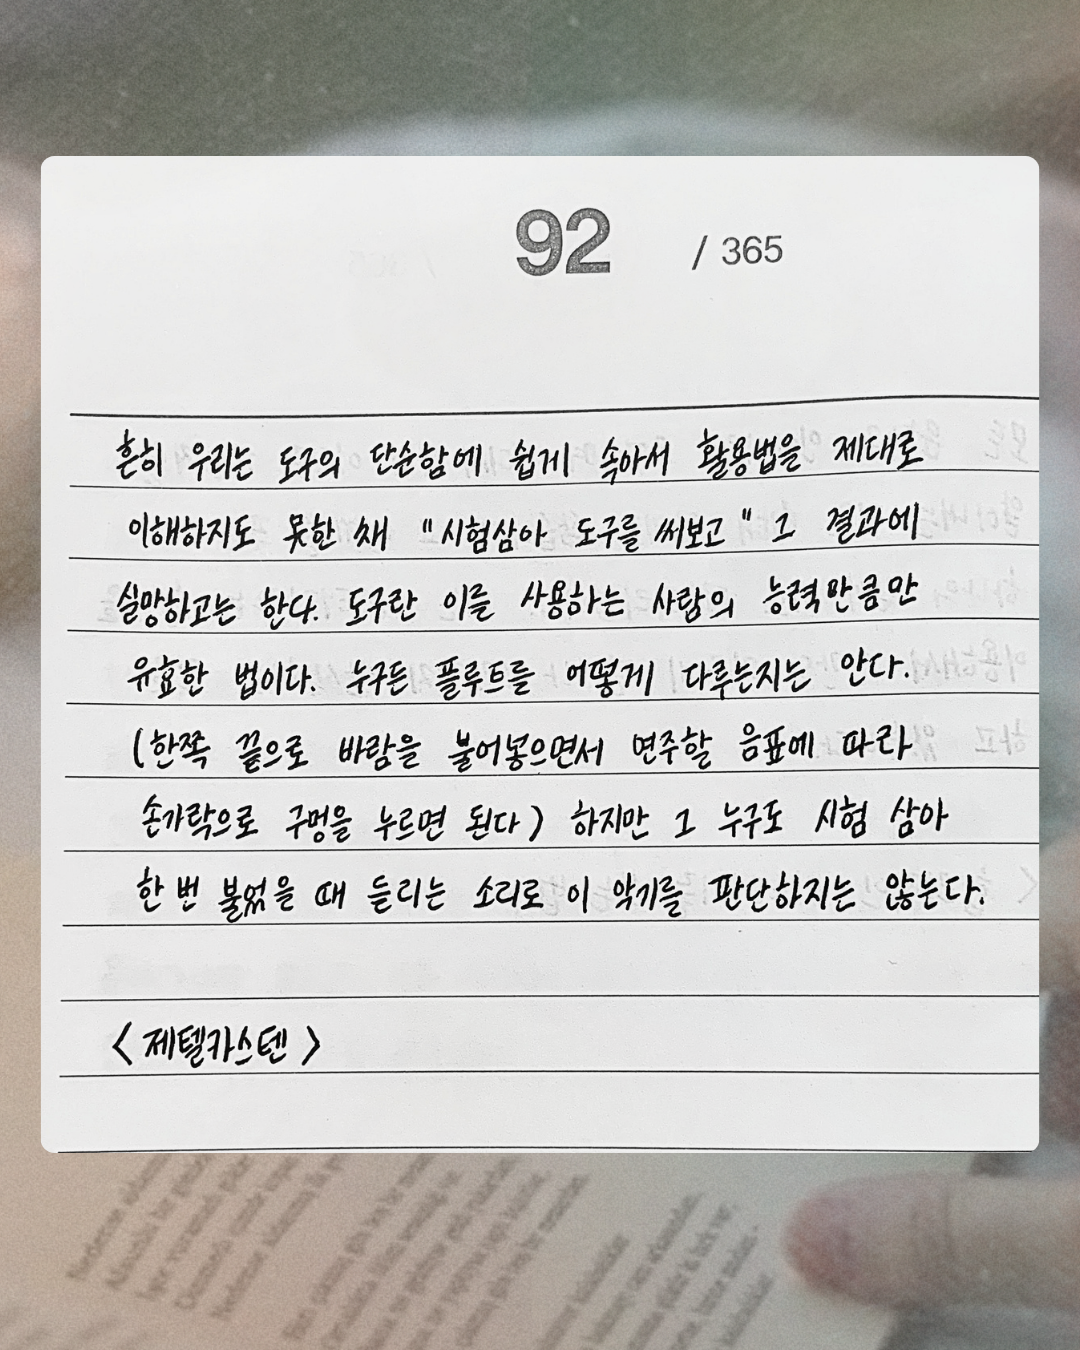 92 / 365
흔히 우리는 도구의 단순함에 쉽게 속아서 활용법을 제대로
이해하지도 못한 채 "시험삼아 도구를 써보고" 그 결과에
실망하고는 한다. 도구란 이를 사용하는 사람의 능력만큼만
유효한 법이다. 누구든 플루트를 어떻게 다루는지는 안다.
(한쪽 끝으로 바람을 불어넣으면서 연주할 음표에 따라
손가락으로 구멍을 누르면 된다) 하지만 그 누구도 시험 삼아
한 번 불었을 때 들리는 소리로 이 악기를 판단하지는 않는다.
<제텔카스텐>